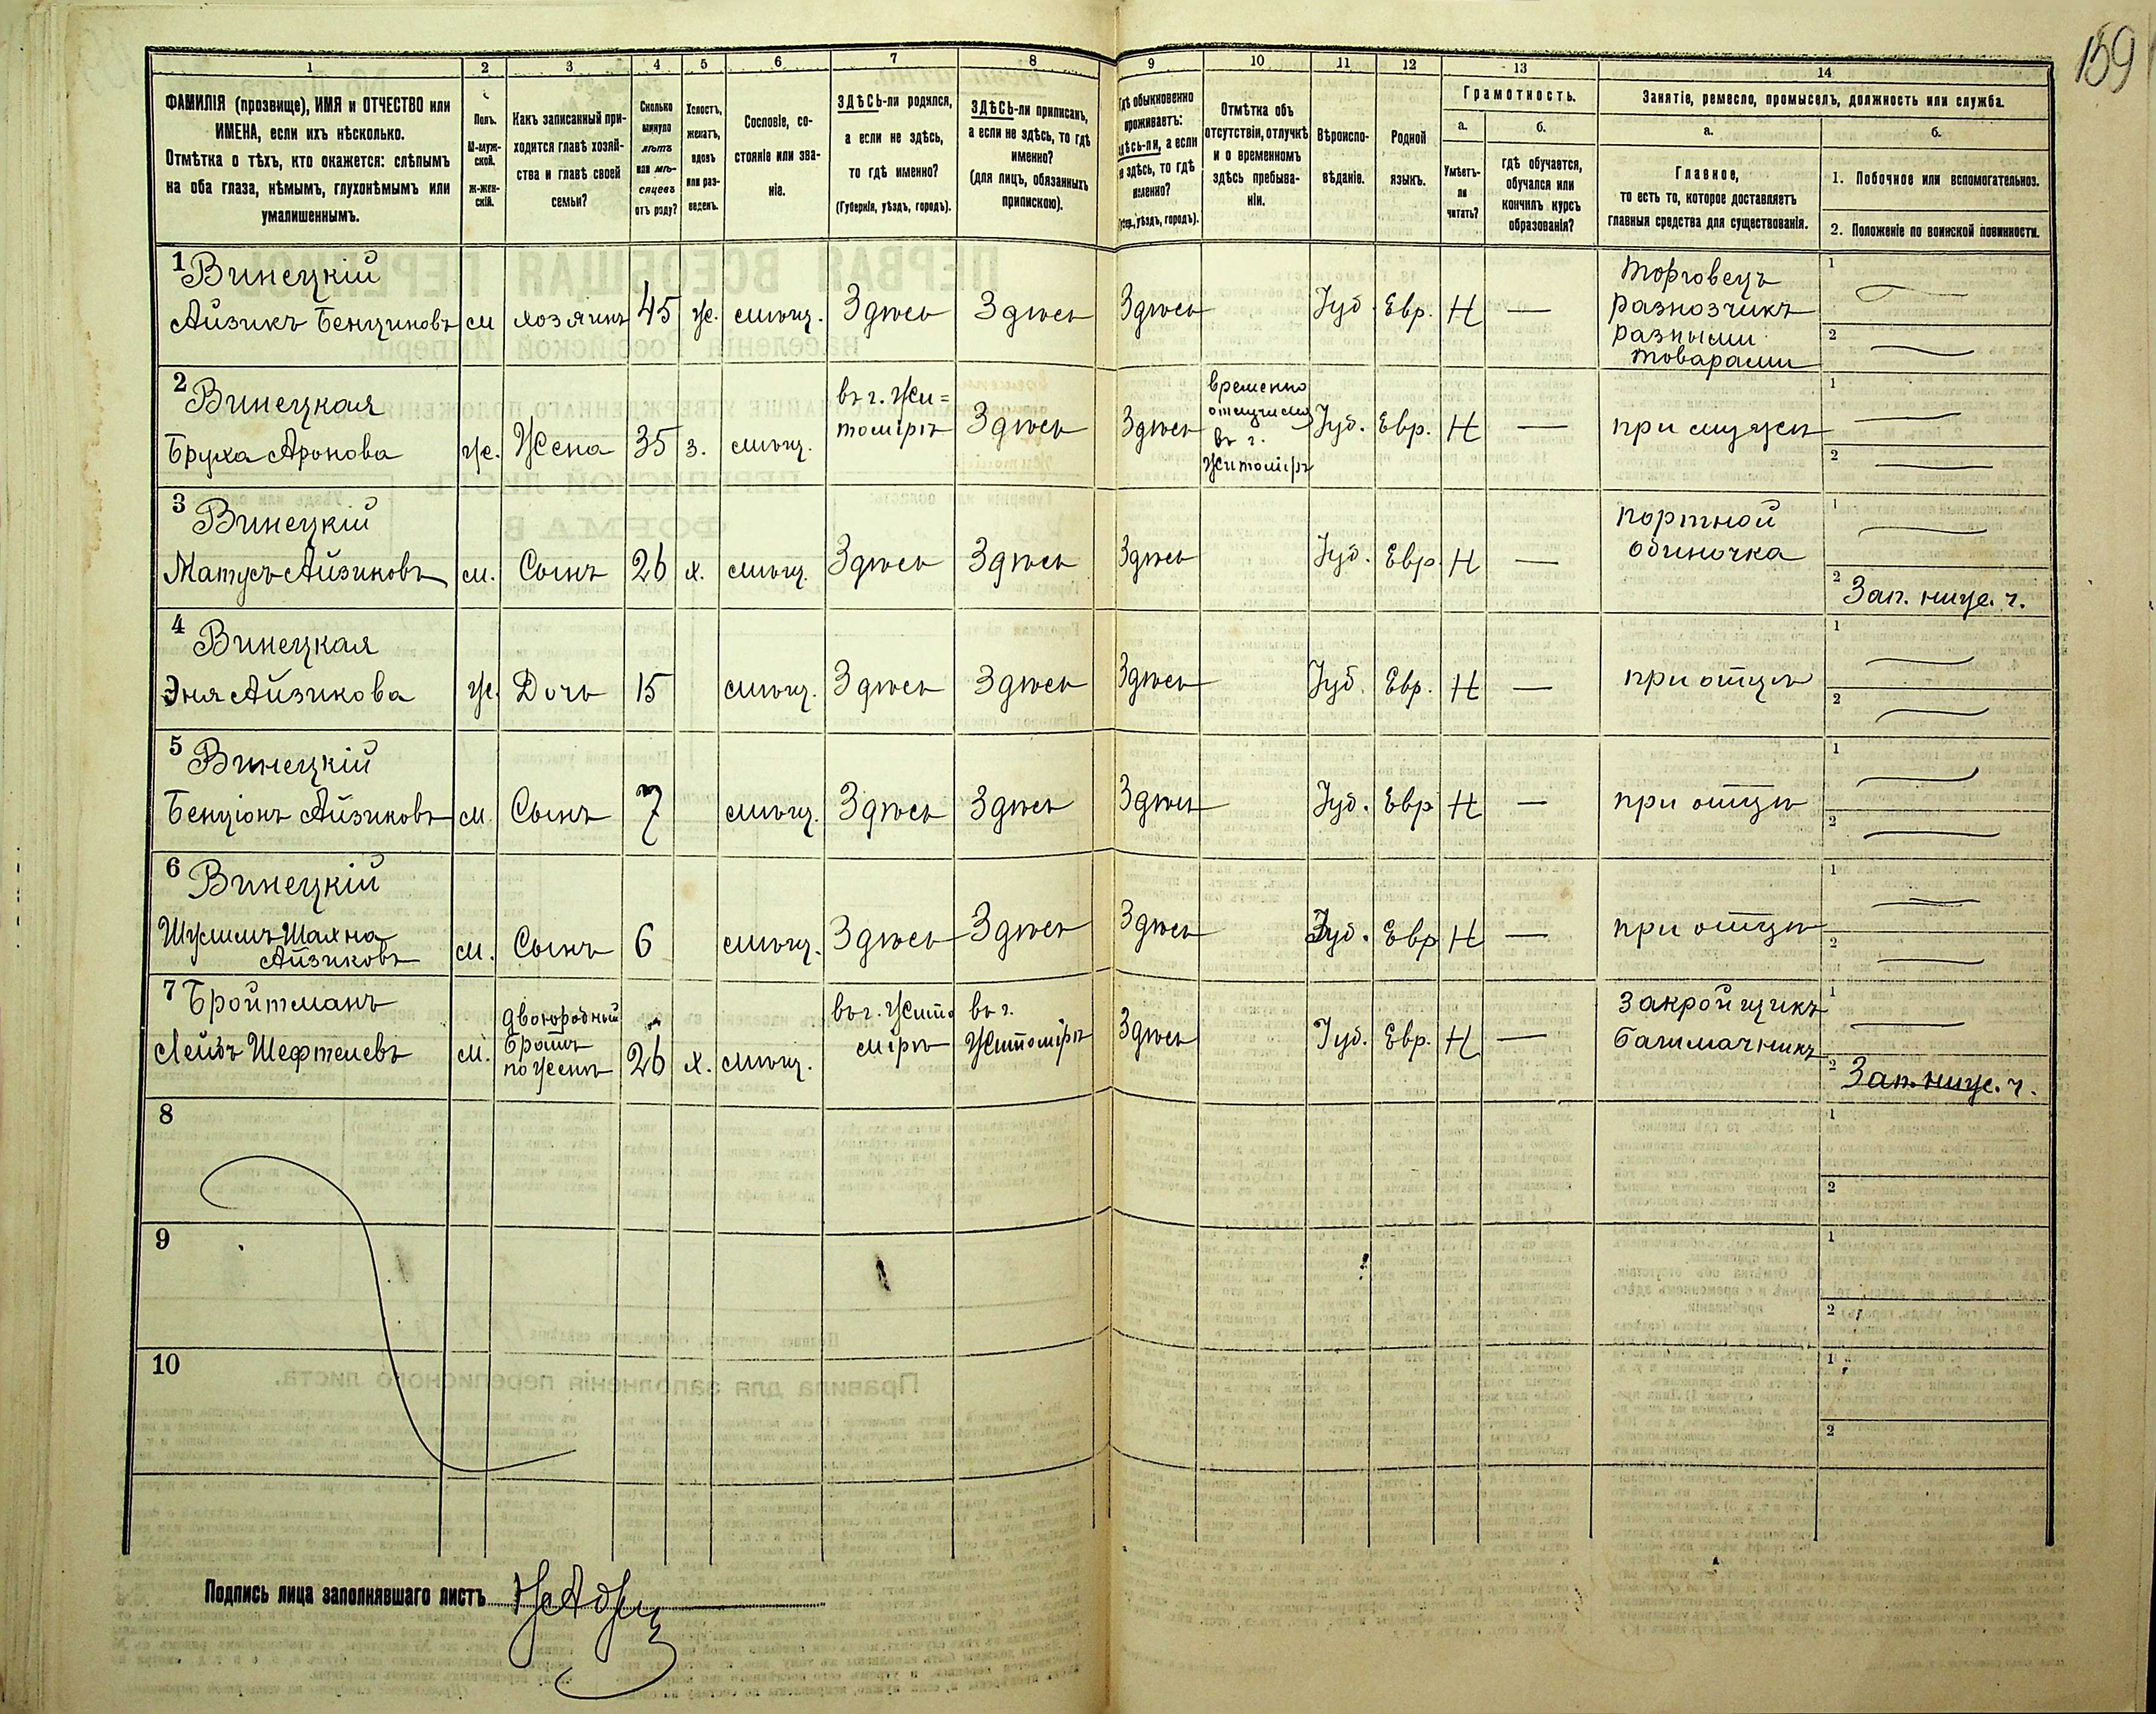 159
1 2 3 4 5 6 7 8 9 10 11 12 13 14
ФАМИЛІЯ (прозвище), ИМЯ и ОТЧЕСТВО или
ИМЕНА, если ихъ нѣсколько.
Отмѣтка о тѣхъ, кто окажется: слѣпымъ
на оба глаза, нѣмымъ, глухонѣмымъ или
умалишеннымъ.
Полъ.
М-муж-
ской.
ж-жен-
скій.
Какъ записанный при-
ходится главѣ хозяй-
ства и главѣ своей
семьи?
Сколько
минуло
лѣтъ
или мѣ-
сяцевъ
отъ роду?
Холостъ,
женатъ,
вдовъ
или раз-
веденъ.
Сословіе, со-
стояніе или зва-
ніе.
ЗДѢСЬ-ли родился,
а если не здѣсь,
то гдѣ именно?
(Губернія, уѣздъ, городъ).
ЗДѢСЬ-ли приписанъ,
а если не здѣсь, то гдѣ
именно?
(для лицъ, обязанныхъ
припискою).
Гдѣ обыкновенно
проживаетъ:
здѣсь-ли, а если
не здѣсь, то гдѣ
именно?
(Губ., уѣздъ, городъ).
Отмѣтка объ
отсутствіи, отлучкѣ
и о временномъ
здѣсь пребыва-
ніи.
Вѣроиспо-
вѣданіе.
Родной
языкъ.
Грамотность.
а. б.
Умѣетъ-
ли
читать?
гдѣ обучается,
обучался или
кончилъ курсъ
образованія?
Занятіе, ремесло, промыселъ, должность или служба.
а. б.
Главное,
то есть то, которое доставляетъ
главныя средства для существованія.
1. Побочное или вспомогательное.
2. Положеніе по воинской повинности.
1 Винецкій
Айзикъ Бенционовъ м хозяинъ 45 ж. мѣщ. Здѣсь Здѣсь Здѣсь Іуд. Евр. Н —
Торговецъ
разнозчикъ
разными
товарами
1 —
2 —
2 Винецкая
Бруха Аронова ж. Жена 35 з. мѣщ.
въ г. Жи=
томірѣ
Здѣсь Здѣсь
временно
отлучилась
въ г.
Житоміръ
Іуд. Евр. Н — при мужѣ
1 —
2 —
3 Винецкій
Матусъ Айзиковъ м. Сынъ 26 х. мѣщ. Здѣсь Здѣсь Здѣсь Іуд. Евр. Н —
портной
одиночка
1 —
2 Зап. ниж. ч.
4 Винецкая
Эня Айзикова ж. Дочь 15 мѣщ. Здѣсь Здѣсь Здѣсь Іуд. Евр. Н — при отцѣ
1 —
2 —
5 Винецкій
Бенціонъ Айзиковъ м. Сынъ 7 мѣщ. Здѣсь Здѣсь Здѣсь Іуд. Евр Н — при отцѣ
1 —
2 —
6 Винецкій
Шулимъ Шахна
Айзиковъ
м. Сынъ 6 мѣщ. Здѣсь Здѣсь Здѣсь Іуд. Евр Н — при отцѣ
1 —
2 —
7 Бройтманъ
Лейбъ Шефтелевъ м.
двоюродный
братъ
по женѣ
26 х. мѣщ.
въ г. Жито
мірѣ
въ г.
Житомірѣ
Здѣсь Іуд. Евр. Н —
закройщикъ
башмачникъ
1 —
2 Зап. ниж. ч.
8
1
2
9
1
2
10
1
2
Подпись лица заполнявшаго листъ